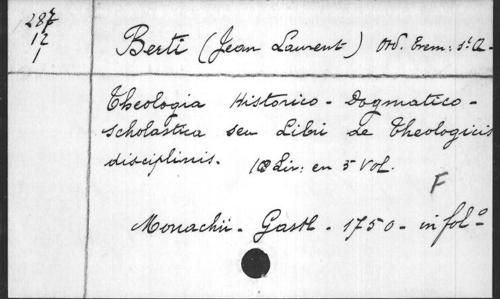 287
12
1
Berti (Jean Laurent) Ord. Erem: St A-
Theologia Historico-Dogmatico-
scholastica seu Libri de Theologicis
disciplinis. 10 Liv: en 5 Vol.
F
Monachii - Gastl - 1750 - in folº